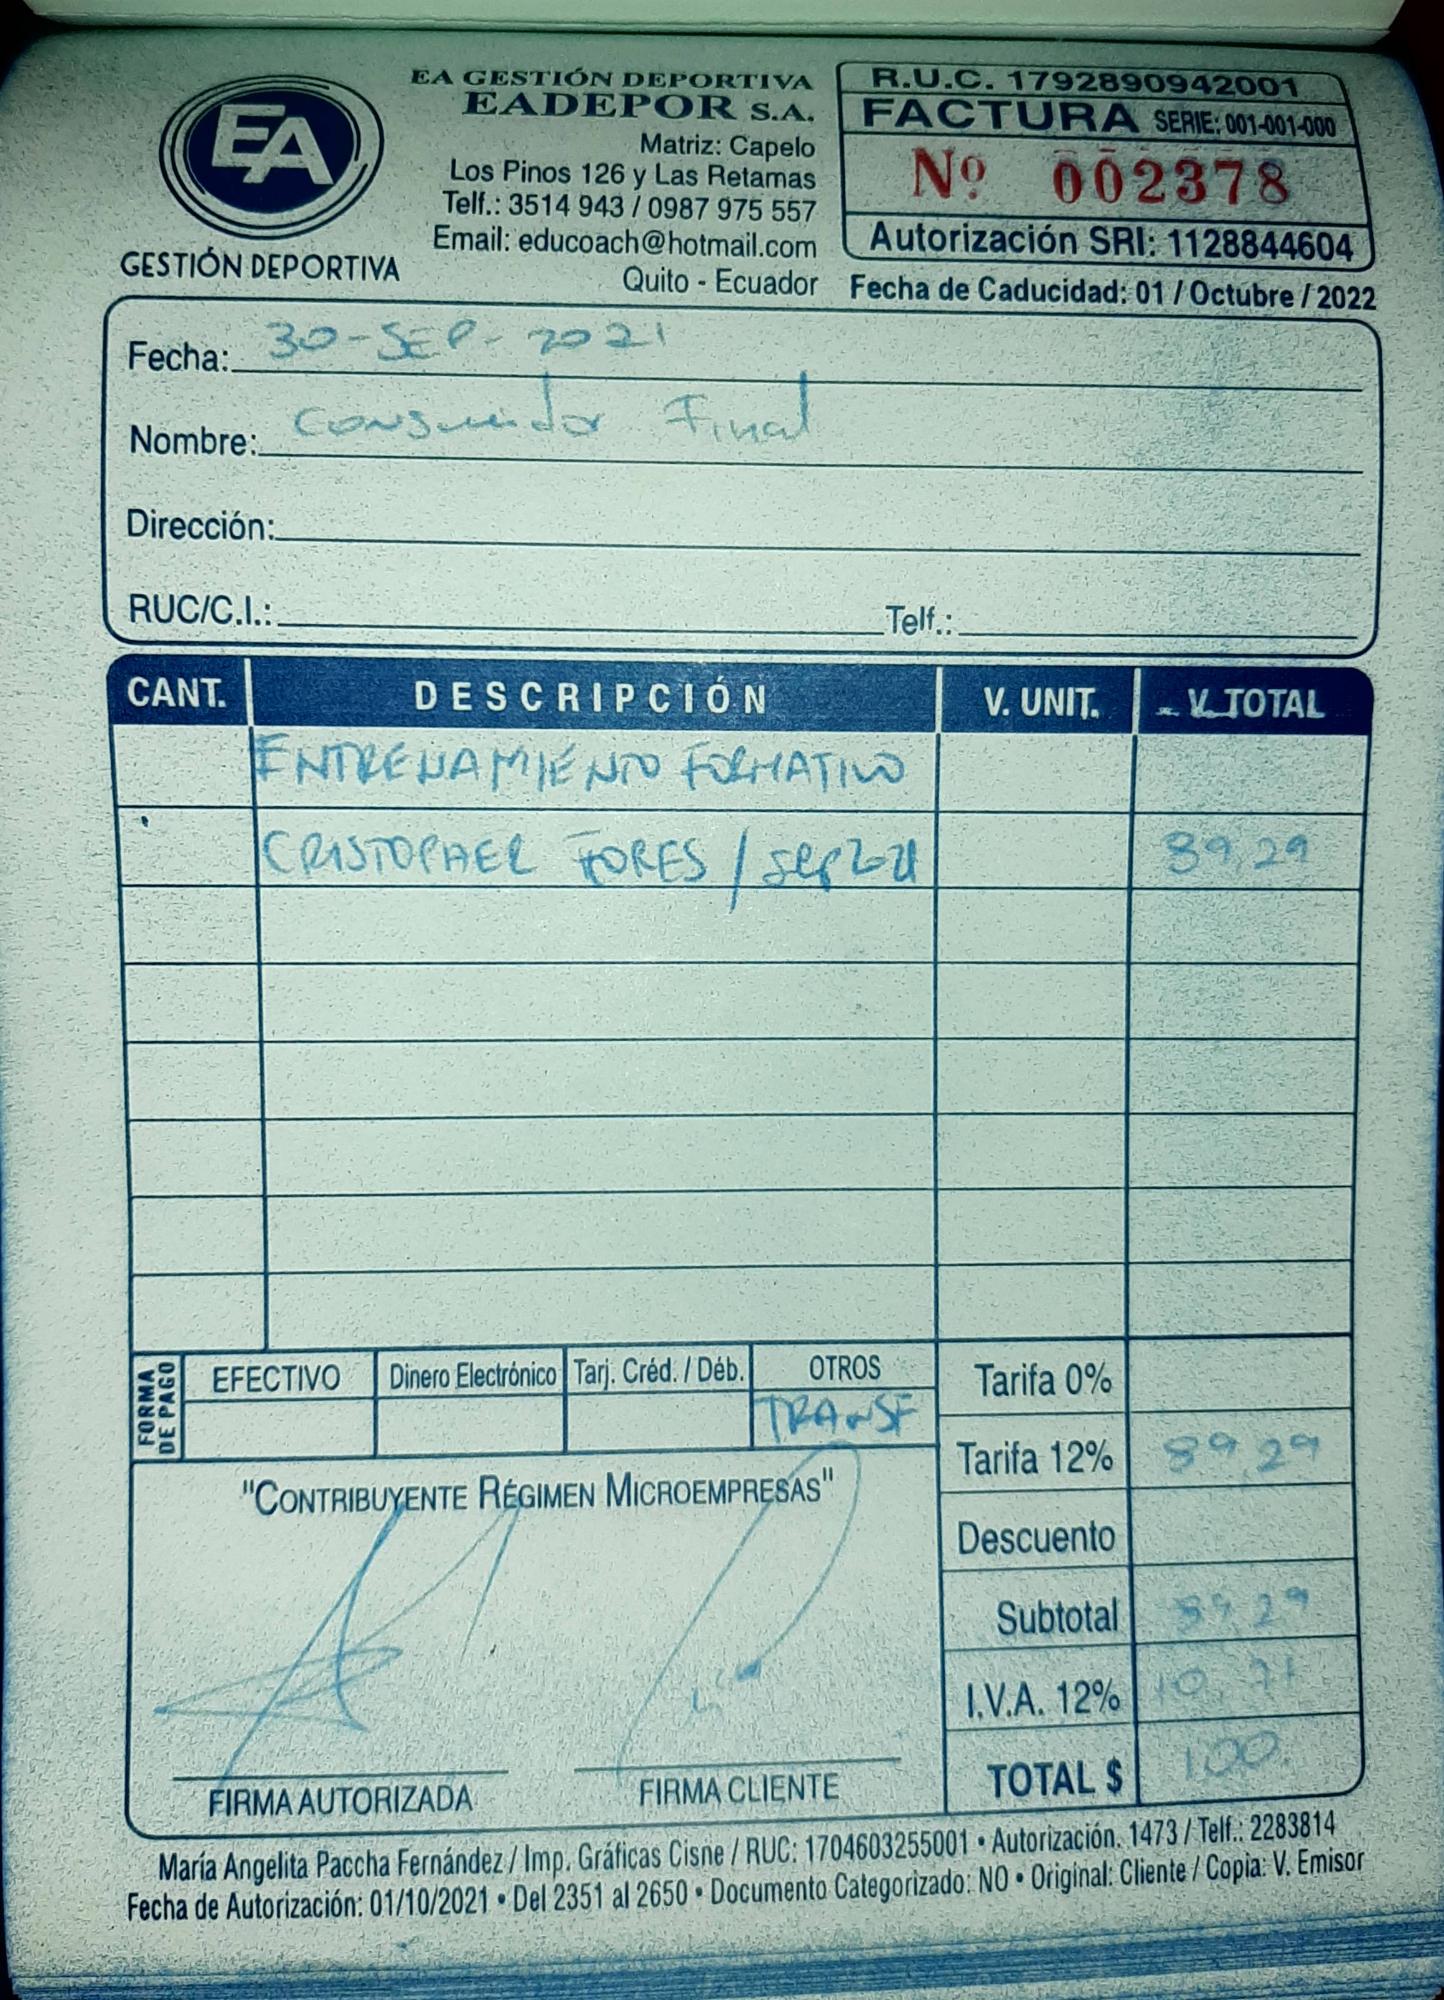 EA
GESTIÓN DEPORTIVA
EA GESTIÓN DEPORTIVA
EADEPOR S.A.
Matriz: Capelo
Los Pinos 126 y Las Retamas
Telf.: 3514 943 / 0987 975 557
Email: educoach@hotmail.com
Quito - Ecuador
R.U.C. 1792890942001
FACTURA SERIE: 001-001-000
Nº 002378
Autorización SRI: 1128844604
Fecha de Caducidad: 01 / Octubre / 2022
Fecha: 30-SEP-2021
Nombre: Consumidor Final
Dirección:
RUC/C.I.: Telf.:
CANT. DESCRIPCIÓN V. UNIT. V. TOTAL
ENTRENAMIENTO FORMATIVO
CRISTOPHER FORES / 89,29
FORMA DE PAGO
EFECTIVO Dinero Electrónico Tarj. Créd. / Déb. OTROS
TRANSF
Tarifa 0%
Tarifa 12% 89,29
Descuento
Subtotal 89,29
I.V.A. 12% 10,71
TOTAL $ 100.
"CONTRIBUYENTE RÉGIMEN MICROEMPRESAS"
FIRMA AUTORIZADA FIRMA CLIENTE
María Angelita Paccha Fernández / Imp. Gráficas Cisne / RUC: 1704603255001 • Autorización. 1473 / Telf.: 2283814
Fecha de Autorización: 01/10/2021 • Del 2351 al 2650 • Documento Categorizado: NO • Original: Cliente / Copia: V. Emisor